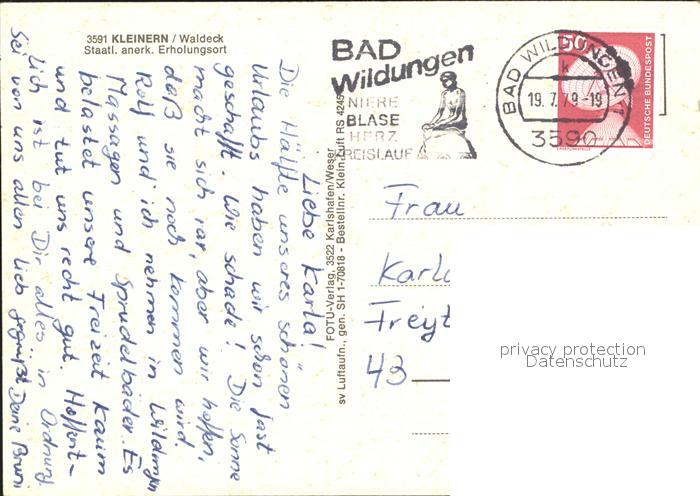 3591 KLEINERN / Waldeck
Staatl. anerk. Erholungsort
Liebe Karla!
Die Hälfte unseres schönen
Urlaubs haben wir schon fast
geschafft. Wie schade! Die Sonne
macht sich rar, aber wir hoffen,
daß sie noch kommen wird.
Rolf und ich nehmen in Wildungen
Massagen und Sprudelbäder. Es
belastet unsere Freizeit kaum
und tut uns recht gut. Hoffent-
lich ist bei Dir alles in Ordnung.
Sei von uns allen lieb gegrüßt Deine Bruni
FOTU-Verlag, 3522 Karlshafen/Weser
sv Luftaufn., gen. SH 1-70818 - Bestellnr. Klein. Luft RS 4245
BAD
Wildungen
NIERE
BLASE
HERZ
KREISLAUF
BAD WILDUNGEN 1
k
19.7.79-19
3590
50
DEUTSCHE BUNDESPOST
Frau
Karl
Freyt
43
privacy protection
Datenschutz